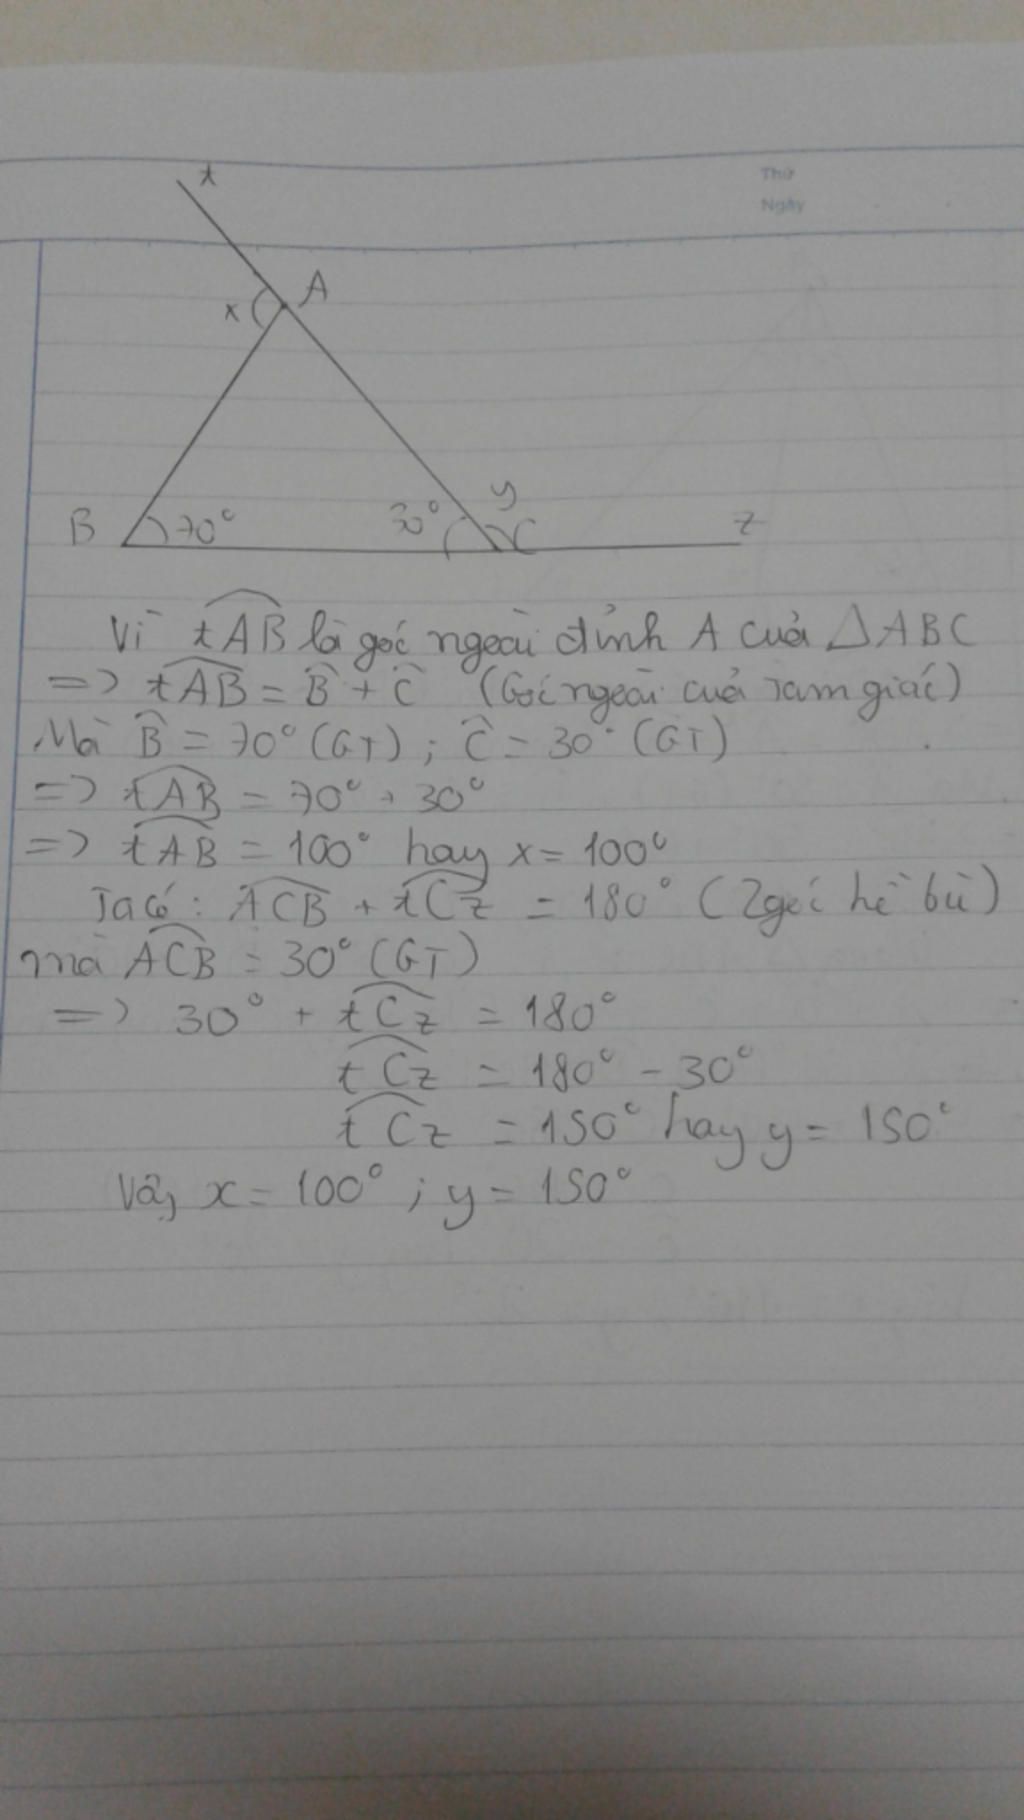 Thứ
Ngày
t
A
x
y
B 70° 30° C z
Vì tAB là góc ngoài đỉnh A của △ABC
=> tAB = B + C (Góc ngoài của Tam giác)
Mà B = 70° (GT) ; C = 30° (GT)
=> tAB = 70° + 30°
=> tAB = 100° hay x = 100°
Ta có : ACB + tCz = 180° (2 góc kề bù)
mà ACB = 30° (GT)
=> 30° + tCz = 180°
tCz = 180° - 30°
tCz = 150° hay y = 150°
Vậy x = 100° ; y = 150°